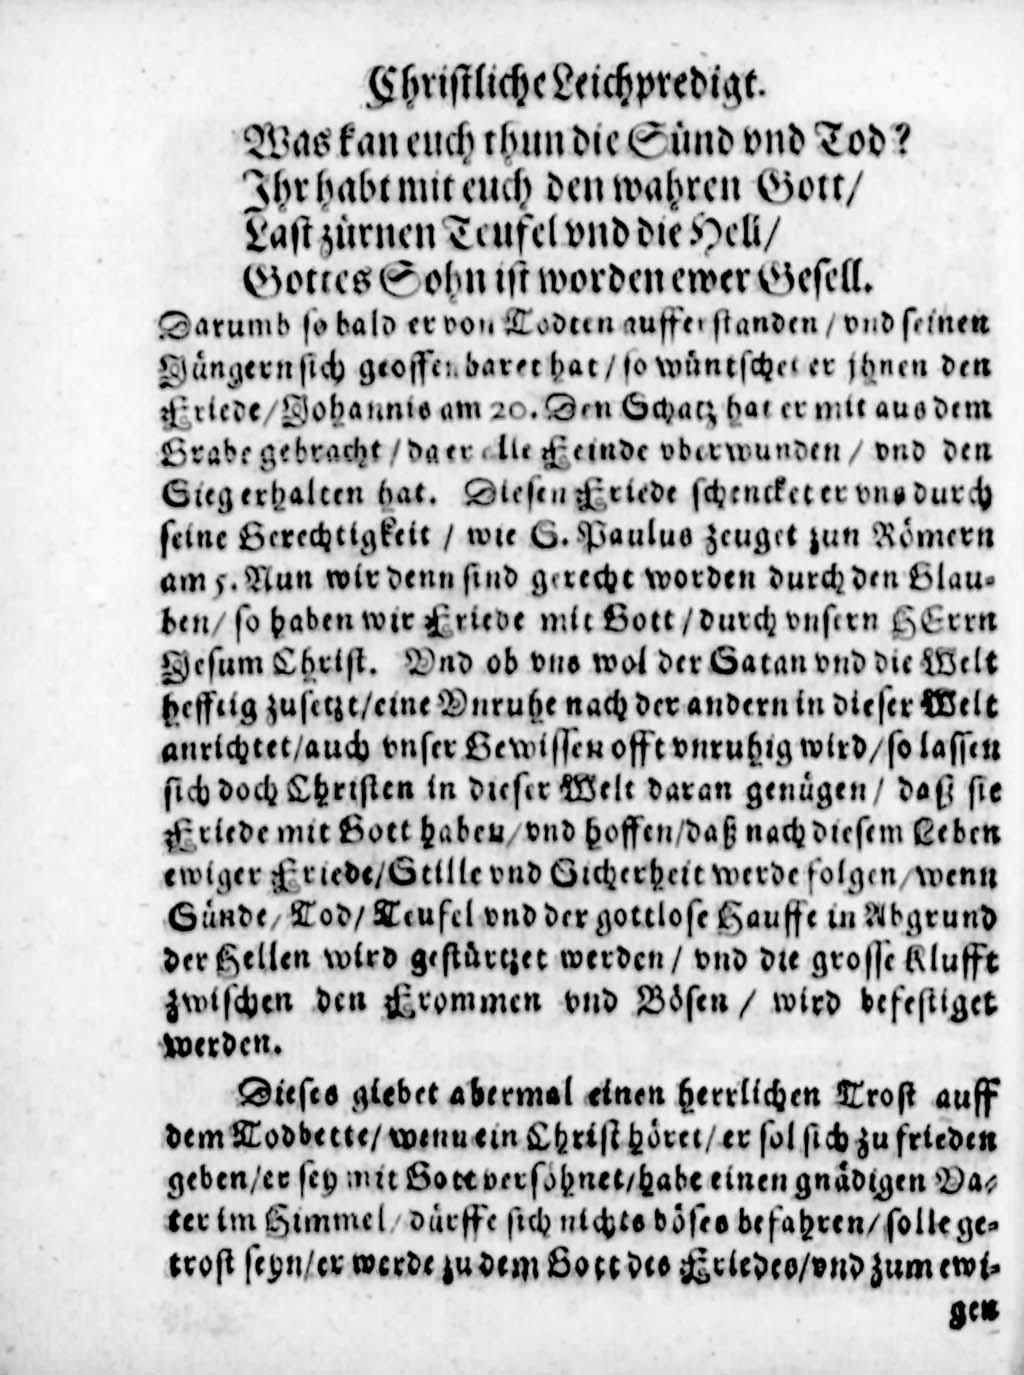 Christliche Leichpredigt.
Was kan euch thun die Sünd vnd Tod?
Ihr habt mit euch den wahren Gott/
Last zürnen Teufel vnd die Hell/
Gottes Sohn ist worden ewer Gesell.
Darumb so bald er von Todten aufferstanden / vnd seinen
Jüngern sich geoffenbaret hat / so wüntschet er jhnen den
Friede / Johannis am 20. Den Schatz hat er mit aus dem
Grabe gebracht / da er alle Feinde vberwunden / vnd den
Sieg erhalten hat. Diesen Friede schencket er vns durch
seine Gerechtigkeit / wie S. Paulus zeuget zun Römern
am 5. Nun wir denn sind gerecht worden durch den Glau-
ben / so haben wir Friede mit Gott / durch vnsern HErrn
Jesum Christ. Vnd ob vns wol der Satan vnd die Welt
hefftig zusetzt / eine Vnruhe nach der andern in dieser Welt
anrichtet / auch vnser Gewissen offt vnruhig wird / so lassen
sich doch Christen in dieser Welt daran genügen / daß sie
Friede mit Gott haben / vnd hoffen / daß nach diesem Leben
ewiger Friede / Stille vnd Sicherheit werde folgen / wenn
Sünde / Tod / Teufel vnd der gottlose Hauffe in Abgrund
der Hellen wird gestürtzet werden / vnd die grosse Klufft
zwischen den Frommen vnd Bösen / wird befestiget
werden.
Dieses giebet abermal einen herrlichen Trost auff
dem Todbette / wenn ein Christ höret / er sol sich zu frieden
geben / er sey mit Gott versöhnet / habe einen gnädigen Va-
ter im Himmel / dürffe sich nichts böses befahren / solle ge-
trost seyn / er werde zu dem Gott des Friedes / vnd zum ewi-
gen